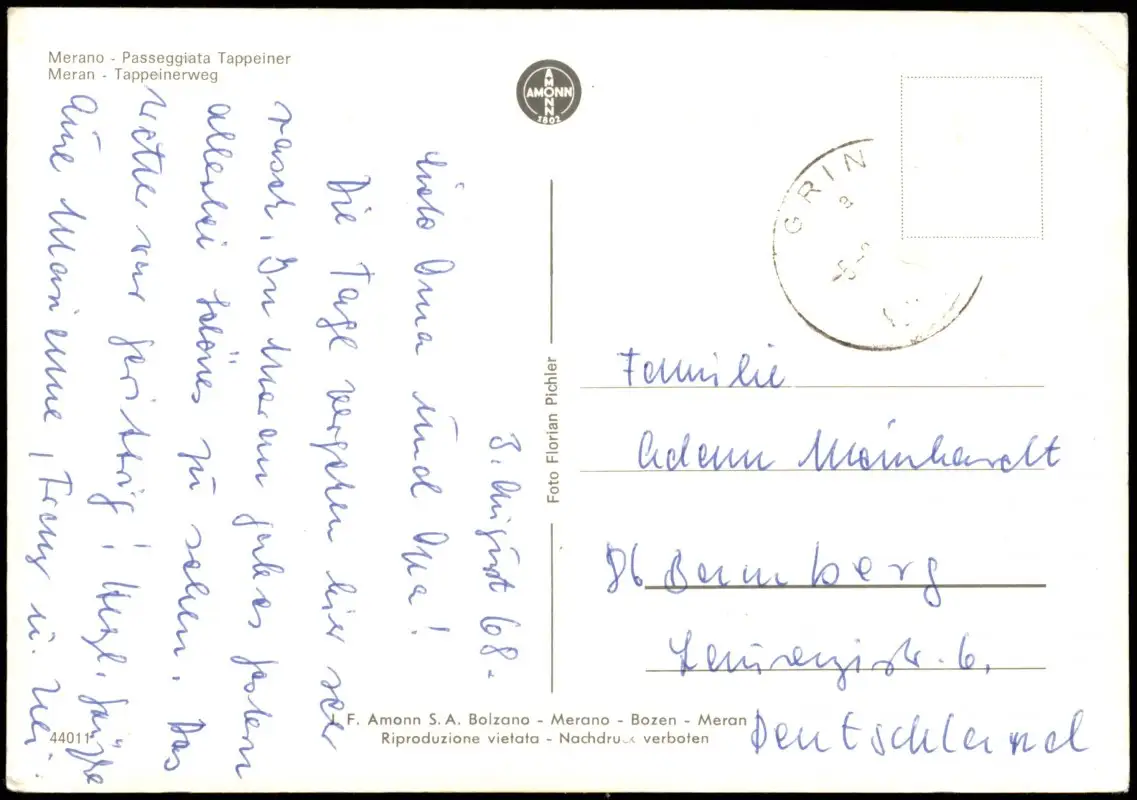 Merano - Passeggiata Tappeiner
Meran - Tappeinerweg
AMONN
AMONN
1802
GRIN
a
3. August 68.
Liebe Oma und Opa!
Die Tage vergehen hier sehr
rasch. In Meran gab es gestern
allerlei schönes zu sehen. Das
Wetter war garstig! Herzl. Grüße
Eure Marienne, Franz u.
Foto Florian Pichler
Familie
Adam Meinhardt
86 Bamberg
Laurenzistr. 6.
Deutschland
J. F. Amonn S.A. Bolzano - Merano - Bozen - Meran
44011
Riproduzione vietata - Nachdruck verboten